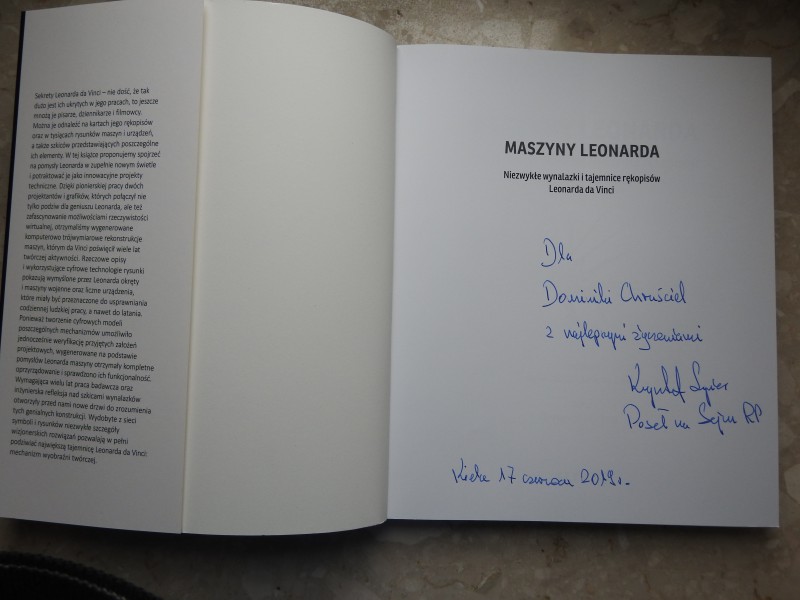 Sekrety Leonarda da Vinci – nie dość, że tak
dużo jest ich ukrytych w jego pracach, to jeszcze
mnożą je pisarze, dziennikarze i filmowcy.
Można je odnaleźć na kartach jego rękopisów
oraz w tysiącach rysunków maszyn i urządzeń,
a także szkiców przedstawiających poszczególne
ich elementy. W tej książce proponujemy spojrzeć
na pomysły Leonarda w zupełnie nowym świetle
i potraktować je jako innowacyjne projekty
techniczne. Dzięki pionierskiej pracy dwóch
projektantów i grafików, których połączył nie
tylko podziw dla geniuszu Leonarda, ale też
zafascynowanie możliwościami rzeczywistości
wirtualnej, otrzymaliśmy wygenerowane
komputerowo trójwymiarowe rekonstrukcje
maszyn, którym da Vinci poświęcił wiele lat
twórczej aktywności. Rzeczowe opisy
i wykorzystujące cyfrowe technologie rysunki
pokazują wymyślone przez Leonarda okręty
i maszyny wojenne oraz liczne urządzenia,
które miały być przeznaczone do usprawniania
codziennej ludzkiej pracy, a nawet do latania.
Ponieważ tworzenie cyfrowych modeli
poszczególnych mechanizmów umożliwiło
jednocześnie weryfikację przyjętych założeń
projektowych, wygenerowane na podstawie
pomysłów Leonarda maszyny otrzymały kompletne
oprzyrządowanie i sprawdzono ich funkcjonalność.
Wymagająca wielu lat praca badawcza oraz
inżynierska refleksja nad szkicami wynalazków
otworzyły przed nami nowe drzwi do zrozumienia
tych genialnych konstrukcji. Wydobyte z sieci
symboli i rysunków niezwykłe szczegóły
wizjonerskich rozwiązań pozwalają w pełni
podziwiać największą tajemnicę Leonarda da Vinci:
mechanizm wyobraźni twórczej.
MASZYNY LEONARDA
Niezwykłe wynalazki i tajemnice rękopisów
Leonarda da Vinci
Dla
Dominiki Chruściel
z najlepszymi życzeniami
Krzysztof
Poseł na Sejm RP
Kielce 17 czerwca 2019 r.